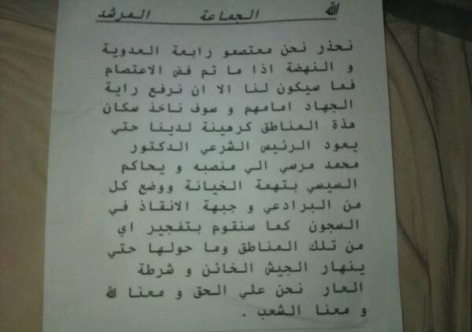 الله الجماعة المرشد
نحذر نحن معتصمو رابعة العدوية
و النهضة اذا ما تم فض الاعتصام
فما سيكون لنا الا ان نرفع راية
الجهاد امامهم و سوف ناخذ سكان
هذة المناطق كرهينة لدينا حتي
يعود الرئيس الشرعي الدكتور
محمد مرسي الي منصبه و يحاكم
السيسي بتهمة الخيانة ووضع كل
من البرادعي و جبهة الانقاذ في
السجون كما سنقوم بتفجير اي
من تلك المناطق وما حولها حتي
ينهار الجيش الخائن و شرطة
العار نحن علي الحق و معنا الله
و معنا الشعب .